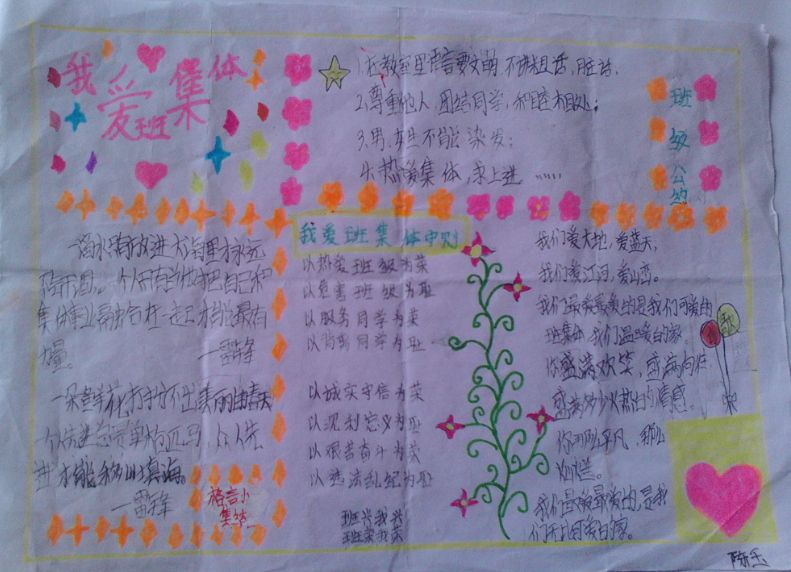 我爱班集体
1.在教室里语言要文明,不讲粗话,脏话。
2.尊重他人,团结同学,和睦相处;
3.男、女生不能染发;
4.热爱集体,求上进……
班级公约
一滴水只有放进大海里才永远
不会干涸。一个人只有当他把自己和
集体事业融合在一起才能最有
力量。
——雷锋
一朵鲜花打扮不出美丽的春天
一个人先进总是单枪匹马,众人先
进才能移山填海。
——雷锋
格言小
集锦
我爱班集体守则
以热爱班级为荣
以危害班级为耻
以服务同学为荣
以背离同学为耻
以诚实守信为荣
以见利忘义为耻
以艰苦奋斗为荣
以违法乱纪为耻
班兴我兴
班荣我荣
我们爱大地,爱蓝天,
我们爱江河,爱山峦。
我们最爱最爱的是我们可爱的
班集体,我们温暖的家。
你盛满欢笑,盛满向往
盛满 火热的情感。
你 平凡,
灿烂。
我们最爱最爱的,是我
们 可爱的家。
陈玉